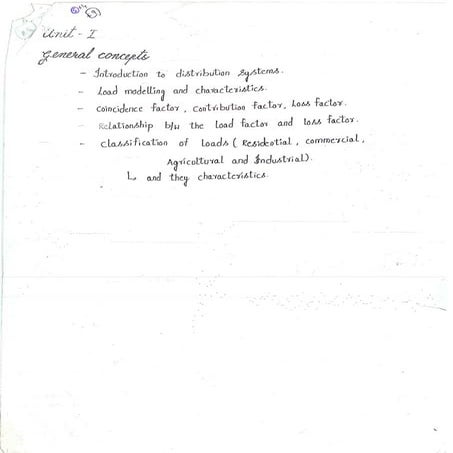 Unit - I
General concepts
- Introduction to distribution systems.
- Load modelling and characteristics.
- coincidence factor, contribution factor, Loss factor.
- Relationship b/w the Load factor and loss factor.
- classification of Loads (Residential, commercial,
Agricultural and Industrial).
L and they characteristics.